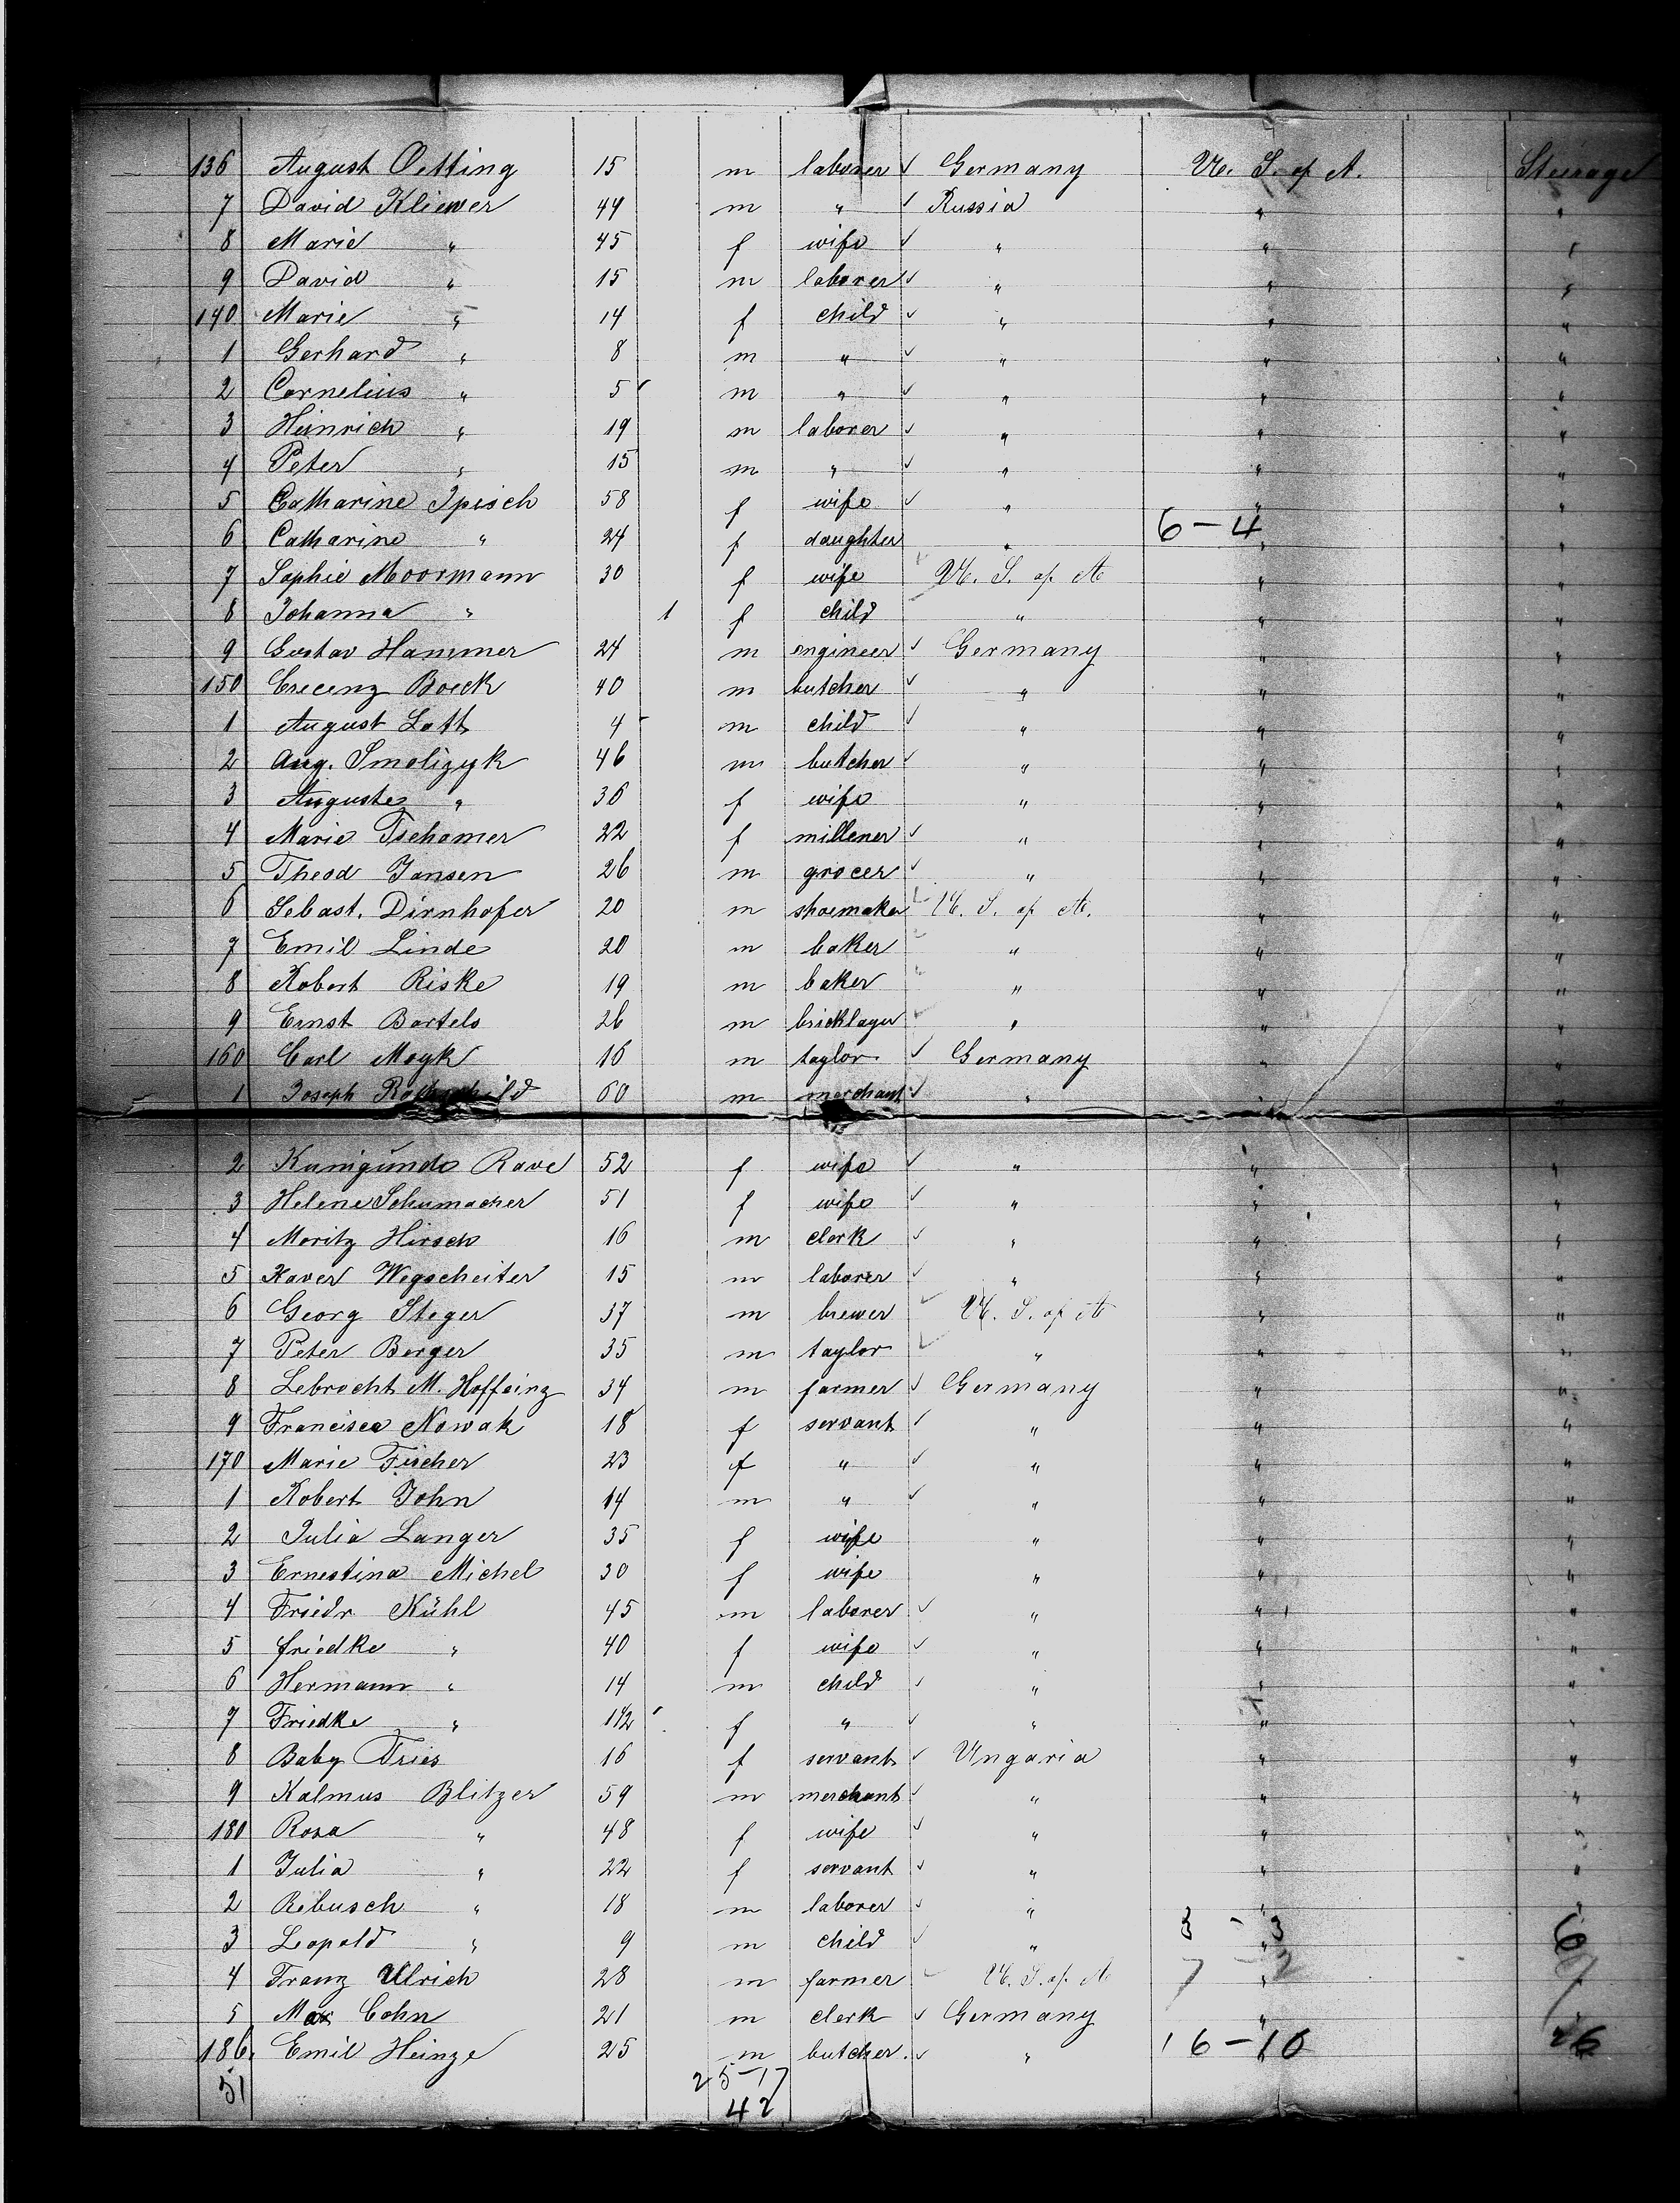 136 August Oetting 15 m laborer ✓ Germany U. S. of A. Steerage
7 David Kliewer 44 m " ✓ Russia " "
8 Marie " 45 f wife ✓ " " "
9 David " 15 m laborer ✓ " " "
140 Marie " 14 f child ✓ " " "
1 Gerhard " 8 m " ✓ " " "
2 Cornelius " 5 m " ✓ " " "
3 Heinrich " 19 m laborer ✓ " " "
4 Peter " 15 m " ✓ " " "
5 Catharine Ipisch 58 f wife ✓ " " "
6 Catharine " 24 f daughter " 6-4 " "
7 Sophie Moormann 30 f wife U. S. of A " "
8 Johanna " 1 f child " " "
9 Gustav Hammer 24 m engineer ✓ Germany " "
150 Crecenz Boeck 40 m butcher ✓ " " "
1 August Lott 4 m child ✓ " " "
2 Aug. Smolizyk 46 m butcher ✓ " " "
3 Auguste " 36 f wife " " "
4 Marie Tschamer 22 f millener ✓ " " "
5 Theod Jansen 26 m grocer ✓ " " "
6 Sebast. Dirnhofer 20 m shoemaker U. S. of A. " "
7 Emil Linde 20 m baker " " "
8 Robert Riske 19 m baker " " "
9 Ernst Bartels 26 m bricklayer " " "
160 Carl Moyk 16 m taylor ✓ Germany " "
1 Joseph Rothschild 60 m merchant ✓ " " "
2 Kunigunde Rave 52 f wife ✓ " " "
3 Helene Schumacher 51 f wife ✓ " " "
4 Moritz Hirsch 16 m clerk ✓ " " "
5 Xaver Wegscheiter 15 m laborer ✓ " " "
6 Georg Steger 37 m brewer U. S. of A " "
7 Peter Berger 35 m taylor " " "
8 Lebrecht M. Hoffeinz 34 m farmer ✓ Germany " "
9 Francisca Nowak 18 f servant ✓ " " "
170 Marie Fischer 23 f " ✓ " " "
1 Robert John 14 m " ✓ " " "
2 Julia Langer 35 f wife " " "
3 Ernestina Michel 30 f wife " " "
4 Friedr Kühl 45 m laborer ✓ " " "
5 friedke " 40 f wife ✓ " " "
6 Hermann " 14 m child ✓ " " "
7 Friedke " f " ✓ " " "
8 Baby Fries 16 f servant ✓ Ungaria " "
9 Kalmus Blitzer 59 m merchant ✓ " " "
180 Rosa " 48 f wife ✓ " " "
1 Julia " 22 f servant ✓ " " "
2 Rebusch " 18 m laborer ✓ " " "
3 Leopold " 9 m child ✓ " 3 - 3 "
4 Franz Ulrich 28 m farmer U. S. of A 7 - 2 "
5 Max Cohn 21 m clerk ✓ Germany " "
186. Emil Heinze 25 m butcher. ✓ " 16-10 26
51 25-17
42